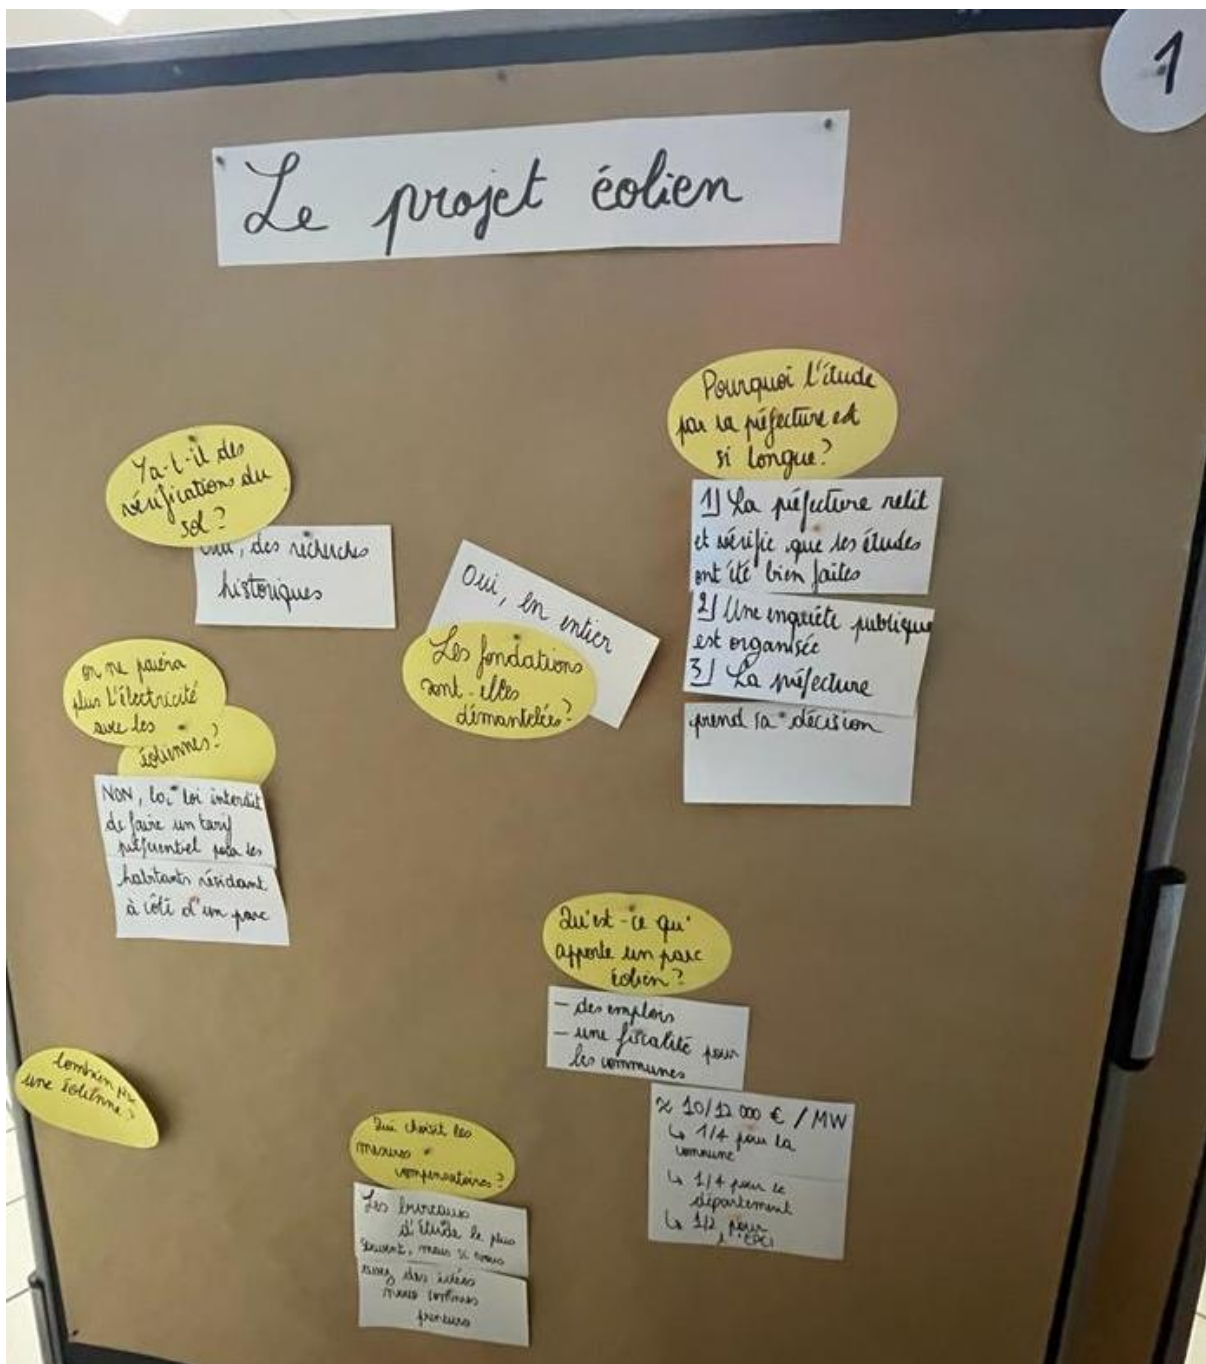 1
Le projet éolien
Pourquoi l'étude
par la préfecture est
si longue?
1) La préfecture relit
et vérifie que les études
ont été bien faites
2) Une enquête publique
est organisée
3) La préfecture
prend sa décision
Ya-t-il des
vérifications du
sol?
Oui, des recherches
historiques
Oui, en entier
Les fondations
sont-elles
démantelées?
on ne paiera
plus l'électricité
avec les
éoliennes?
NON, la loi interdit
de faire un tarif
préférentiel pour les
habitants résidant
à côté d'un parc
Qu'est-ce qu'
apporte un parc
éolien?
- des emplois
- une fiscalité pour
les communes
≈ 10/12 000 € / MW
↳ 1/4 pour la
commune
↳ 1/4 pour le
département
↳ 1/2 pour
l'EPCI
Combien
une éolienne?
Qui choisit les
mesures
compensatoires?
Les bureaux
d'étude le plus
souvent, mais si vous
avez des idées
nous sommes
preneurs